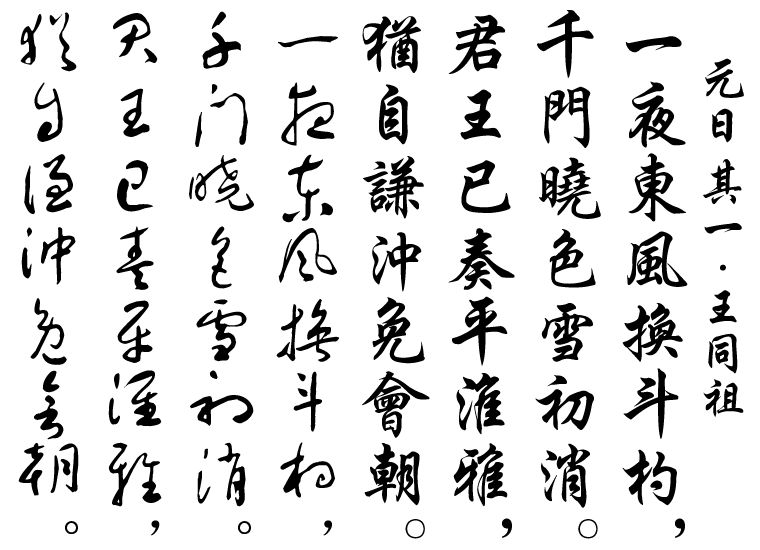 元日其一·王同祖
一夜東風換斗杓，
千門曉色雪初消。
君王已奏平淮雅，
猶自謙沖免會朝。
一夜东风换斗杓，
千门晓色雪初消。
君王已奏平淮雅，
犹自谦冲免会朝。